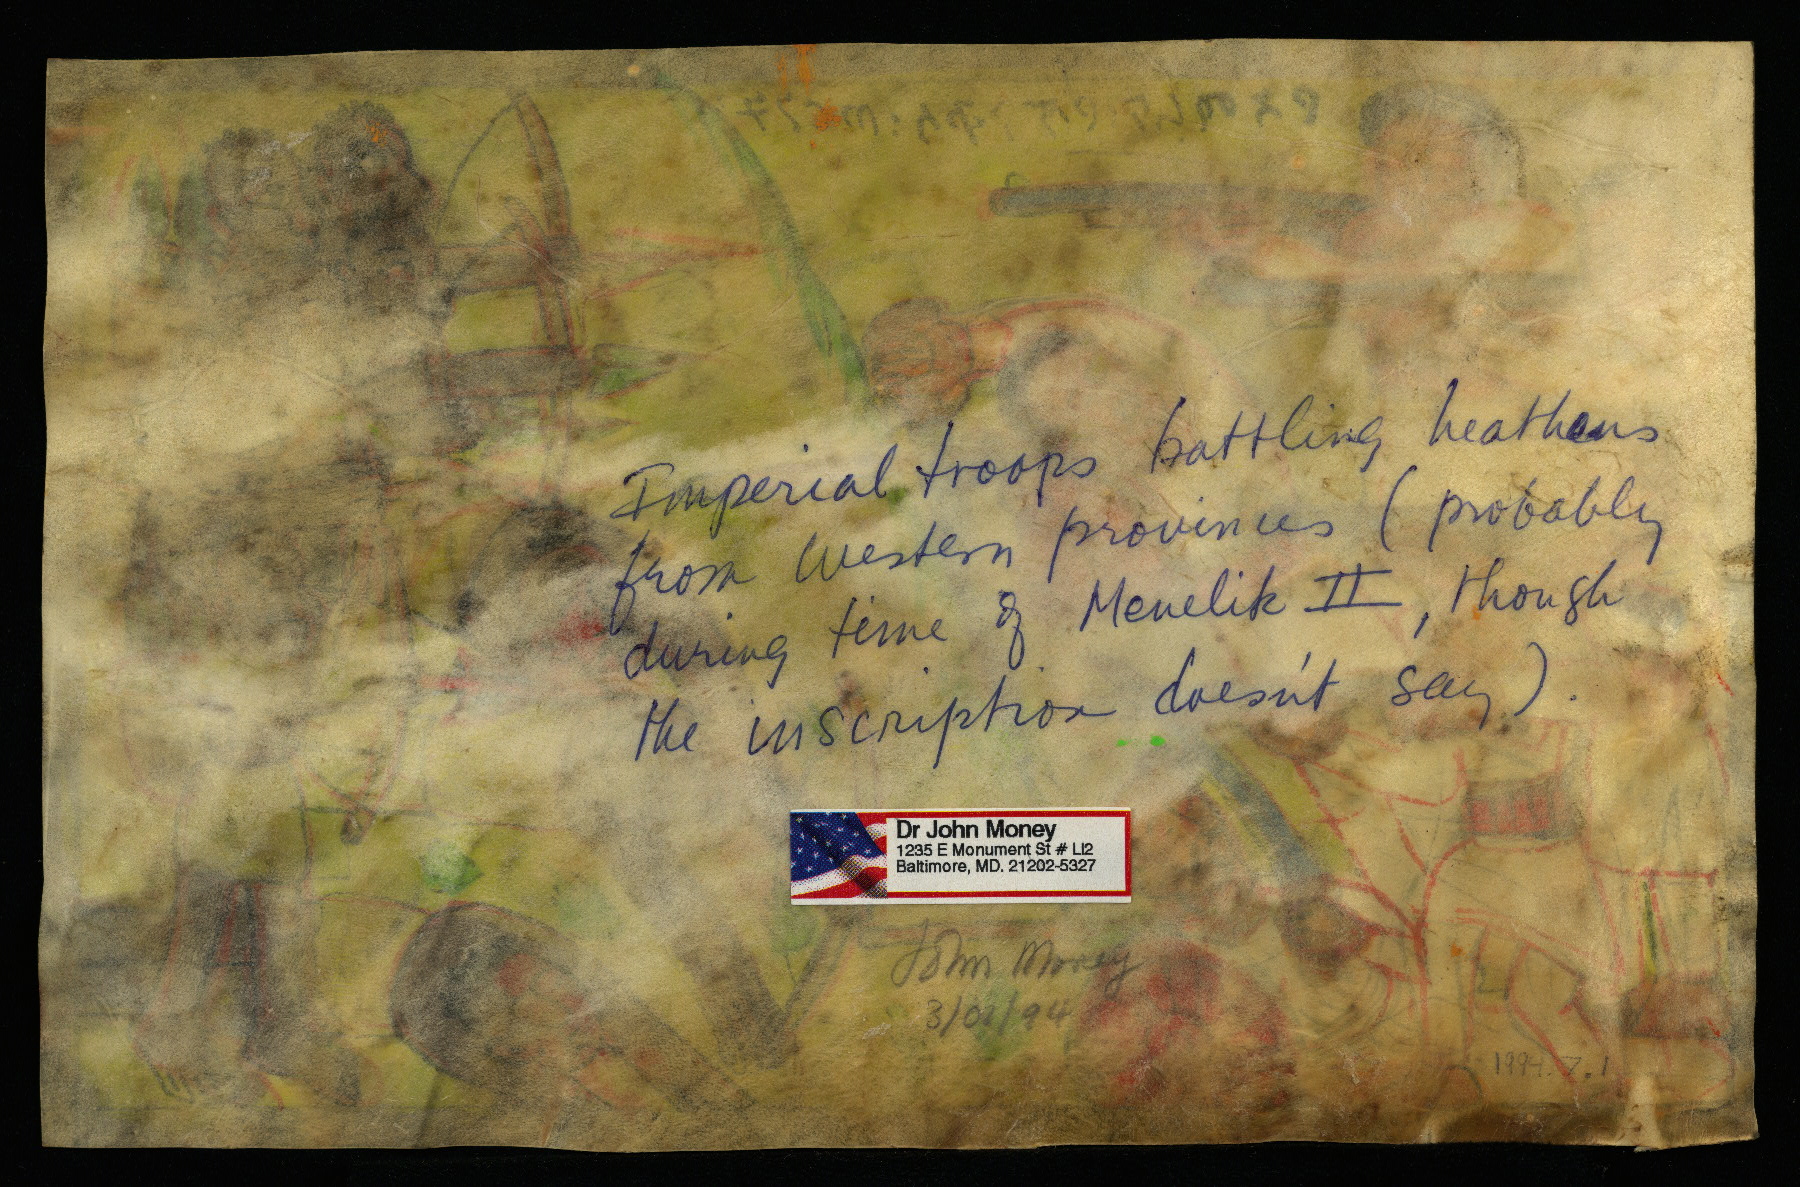 Imperial troops battling heathens
from Western provinces (probably
during time of Menelik II, though
the inscription doesn't say).
Dr John Money
1235 E Monument St # LI2
Baltimore, MD. 21202-5327
John Money
3/01/94
1994.7.1